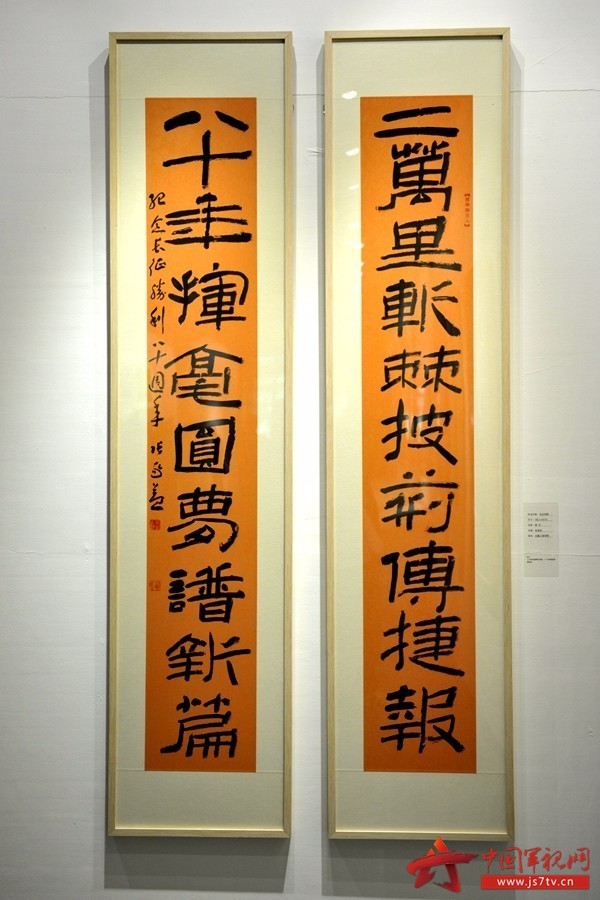 二萬里斬棘披荊傳捷報
八十年揮毫圓夢譜新篇
紀念長征勝利八十周年
中国军视网
www.js7tv.cn